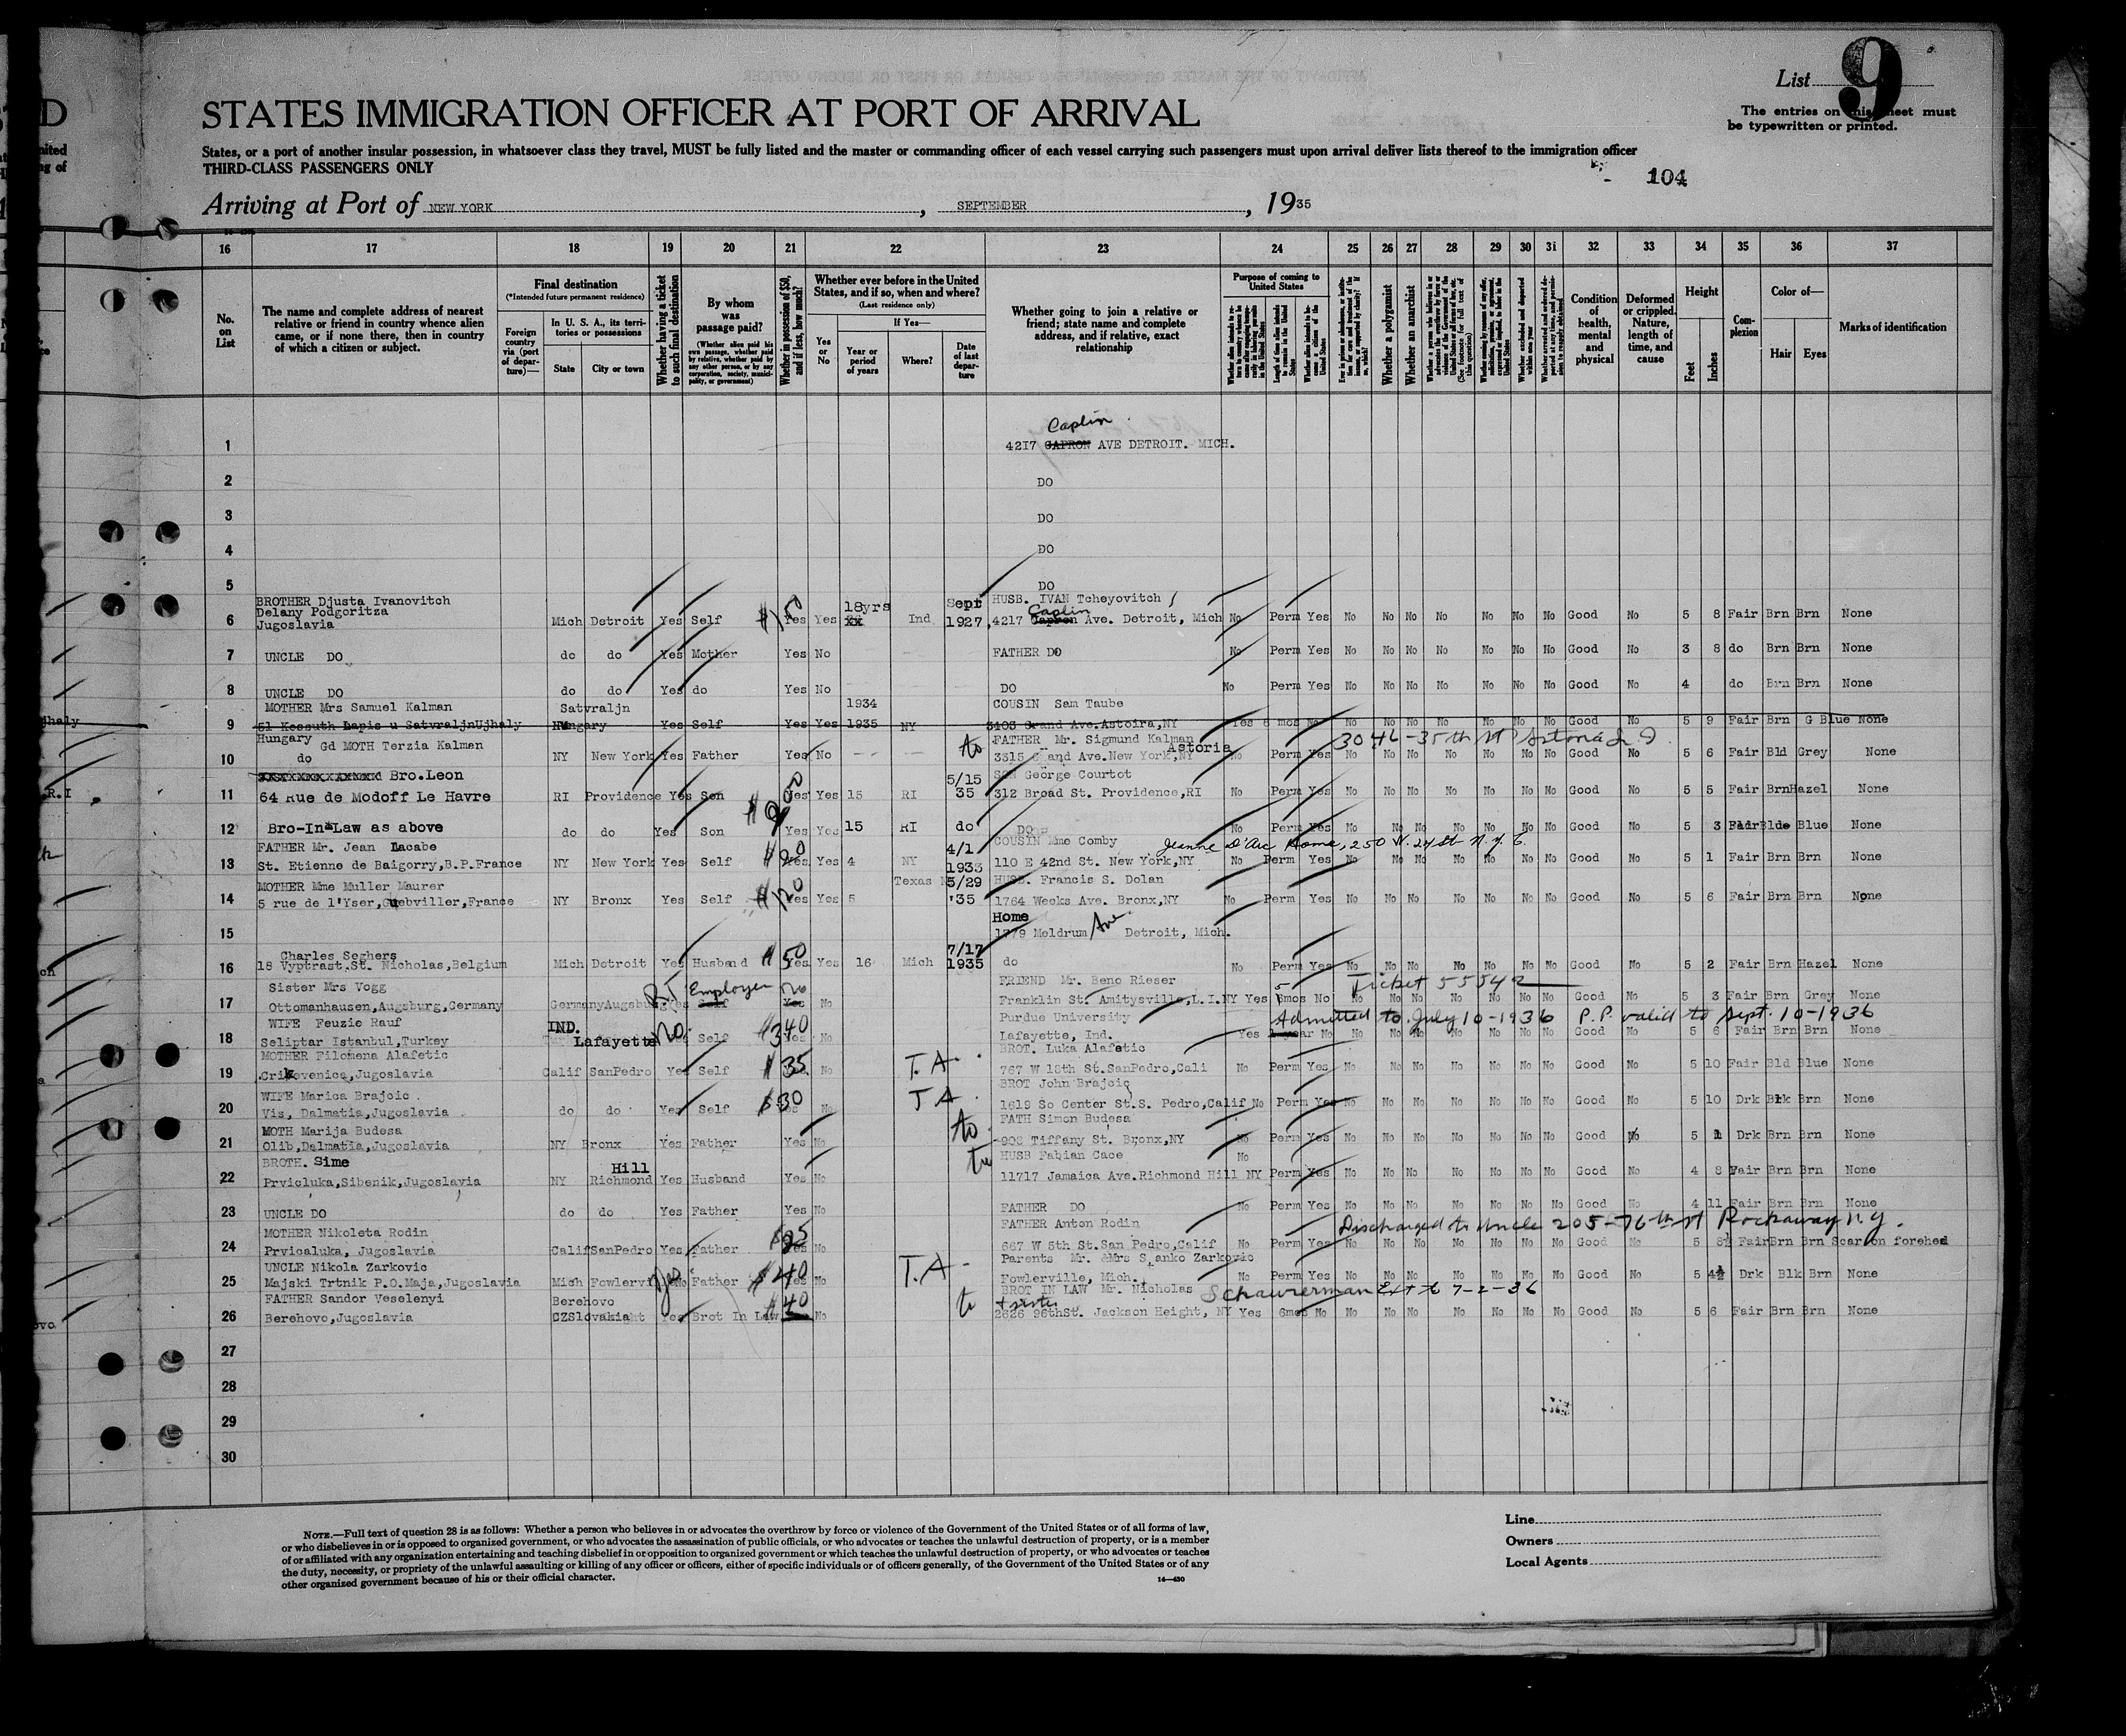 List 9
STATES IMMIGRATION OFFICER AT PORT OF ARRIVAL
The entries on this sheet must
be typewritten or printed.
States, or a port of another insular possession, in whatsoever class they travel, MUST be fully listed and the master or commanding officer of each vessel carrying such passengers must upon arrival deliver lists thereof to the immigration officer
THIRD-CLASS PASSENGERS ONLY
104
Arriving at Port of NEW YORK, SEPTEMBER, 1935
16 17 18 19 20 21 22 23 24 25 26 27 28 29 30 31 32 33 34 35 36 37
No. on List
The name and complete address of nearest relative or friend in country whence alien came, or if none there, then in country of which a citizen or subject.
Final destination
(*Intended future permanent residence)
Foreign country via (port of departure)—
In U. S. A., its territories or possessions
State City or town
Whether having a ticket to such final destination
By whom was passage paid?
(Whether alien paid his own passage, whether paid by relative, whether paid by any other person, or by any corporation, society, municipality, or government)
Whether in possession of $50, and if less, how much?
Whether ever before in the United States, and if so, when and where?
(Last residence only)
Yes or No
If Yes—
Year or period of years
Where?
Date of last departure
Whether going to join a relative or friend; state name and complete address, and if relative, exact relationship
Purpose of coming to United States
Whether a polygamist
Whether an anarchist
Condition of health, mental and physical
Deformed or crippled. Nature, length of time, and cause
Height
Feet Inches
Complexion
Color of—
Hair Eyes
Marks of identification
Caplin
1 4217 CAPRON AVE DETROIT. MICH.
2 DO
3 DO
4 DO
5 DO
BROTHER Djusta Ivanovitch 18yrs Sept HUSB. IVAN Tcheyovitch
Delany Podgoritza Caplin
6 Jugoslavia Mich Detroit Yes Self $150 Yes Yes xx Ind 1927 4217 Capron Ave. Detroit, Mich No Perm Yes No No No No No No No Good No 5 8 Fair Brn Brn None
7 UNCLE DO do do Yes Mother Yes No FATHER DO No Perm Yes No No No No No No No Good No 3 8 do Brn Brn None
8 UNCLE DO do do Yes do Yes No DO No Perm Yes No No No No No No No Good No 4 do Brn Brn None
MOTHER Mrs Samuel Kalman Satvraljn 1934 COUSIN Sam Taube
9 51 Kossuth Lapis u SatvraljnUjhaly Hungary Yes Self Yes Yes 1935 NY 3103 Grand Ave.Astoira,NY Yes 6 mos No No No No No No No No Good No 5 9 Fair Brn G Blue None
Hungary Gd MOTH Terzia Kalman to FATHER Mr. Sigmund Kalman Astoria 3046-35th St Astoria L I
10 do NY New York Yes Father Yes No 3315 Grand Ave.New York,NY No Perm Yes No No No No No No No Good No 5 6 Fair Bld Grey None
Bro.Leon 5/15 SON George Courtot
11 64 Rue de Modoff Le Havre RI Providence Yes Son Yes Yes 15 RI 35 312 Broad St. Providence,RI No Perm Yes No No No No No No No Good No 5 5 Fair Brn Hazel None
12 Bro-In-Law as above do do Yes Son Yes Yes 15 RI do DO No Perm Yes No No No No No No No Good No 5 3 Fair Blde Blue None
FATHER Mr. Jean Lacabe 4/1 COUSIN Mme Comby Jeanne D'Arc Home, 250 W. 24 St N.Y.C.
13 St. Etienne de Baigorry,B.P.France NY New York Yes Self $20 Yes Yes 4 NY 1933 110 E 42nd St. New York,NY No Perm Yes No No No No No No No Good No 5 1 Fair Brn Brn None
MOTHER Mme Muller Maurer Texas 5/29 HUSB. Francis S. Dolan
14 5 rue de l'Yser,Guebviller,France NY Bronx Yes Self $120 Yes Yes 5 '35 1764 Weeks Ave. Bronx,NY No Perm Yes No No No No No No No Good No 5 6 Fair Brn Brn None
Home
15 1779 Meldrum Ave. Detroit, Mich.
Charles Seghers $50 7/17
16 18 Vyptrast.St. Nicholas,Belgium Mich Detroit Yes Husband Yes Yes 16 Mich 1935 do No Perm Yes No No No No No No No Good No 5 2 Fair Brn Hazel None
Sister Mrs Vogg R.T Employer no FRIEND Mr. Beno Rieser 5 Ticket 55542
17 Ottomanhausen,Augsburg,Germany Germany Augsburg Yes Self Yes No Franklin St. Amitysville,L.I.NY Yes 6mos No No No No No No No No Good No 5 3 Fair Brn Grey None
WIFE Feuzie Rauf IND. $340 Purdue University Admitted to July 10-1936 P.P. valid to Sept. 10-1936
18 Seliptar Istanbul,Turkey Lafayette No Self Yes No Lafayette, Ind. Yes 1 year No No No No No No No No Good No 5 6 Fair Brn Brn None
MOTHER Filomena Alafetic T.A. BROT. Luka Alafetic
19 Crikevenica,Jugoslavia Calif SanPedro Yes Self $35 No 767 W 18th St.SanPedro,Cali No Perm Yes No No No No No No No Good No 5 10 Fair Bld Blue None
WIFE Marica Brajcic T A. BROT John Brajcic
20 Vis, Dalmatia,Jugoslavia do do Yes Self $30 Yes No 1619 So Center St.S. Pedro,Calif No Perm Yes No No No No No No No Good No 5 10 Drk Blk Brn None
MOTH Marija Budesa to FATH Simon Budesa
21 Olib,Dalmatia,Jugoslavia NY Bronx Yes Father Yes No 908 Tiffany St. Bronx,NY No Perm Yes No No No No No No No Good No 5 1 Drk Brn Brn None
BROTH. Sime Hill HUSB Fabian Cace No
22 Prvicluka,Sibenik,Jugoslavia NY Richmond Yes Husband Yes No 11717 Jamaica Ave.Richmond Hill NY Perm Yes No No No No No No No Good No 4 8 Fair Brn Brn None
23 UNCLE DO do do Yes Father Yes No FATHER DO No Perm Yes No No No No No No No Good No 4 11 Fair Brn Brn None
MOTHER Nikoleta Rodin FATHER Anton Rodin Discharged to Uncle 205-76th St Rockaway N.Y.
24 Prvicaluka, Jugoslavia Calif SanPedro Yes Father Yes No 667 W 5th St.San Pedro,Calif No Perm Yes No No No No No No No Good No 5 8½ Fair Brn Brn Scar on forehed
UNCLE Nikola Zarkovic T.A- Parents Mr. &Mrs Zarkovic
25 Majski Trtnik P.O.Maja,Jugoslavia Mich Yes Father $40 Yes No Fowlerville, Mich. No Perm Yes No No No No No No No Good No 5 4½ Drk Blk Brn None
FATHER Sandor Veselenyi Berehovo $40 to BROT IN LAW Mr. Nicholas Schawrerman Ext to 7-2-36
+ sister
26 Berehovo,Jugoslavia CZSlovakia Yes Brot In Law No 2626 96thSt. Jackson Height, NY Yes 6mos No No No No No No No No Good No 5 6 Fair Brn Brn None
27
28
29
30
NOTE.—Full text of question 28 is as follows: Whether a person who believes in or advocates the overthrow by force or violence of the Government of the United States or of all forms of law,
or who disbelieves in or is opposed to organized government, or who advocates the assassination of public officials, or who advocates or teaches the unlawful destruction of property, or is a member
of or affiliated with any organization entertaining and teaching disbelief in or opposition to organized government or which teaches the unlawful destruction of property, or who advocates or teaches
the duty, necessity, or propriety of the unlawful assaulting or killing of any officer or officers, either of specific individuals or of officers generally, of the Government of the United States or of any
other organized government because of his or their official character.
14—430
Line
Owners
Local Agents